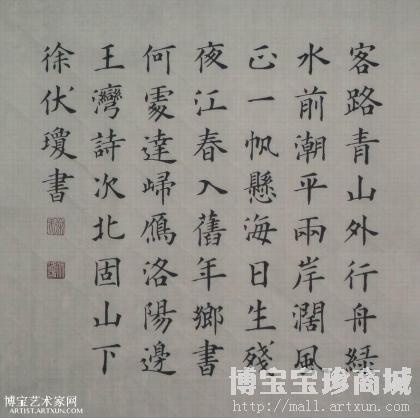 客路青山外行舟緑
水前潮平兩岸濶風
正一帆懸海日生殘
夜江春入舊年鄉書
何處達歸鴈洛陽邊
王灣詩次北固山下
徐伏瓊書
博宝艺术家网
ARTIST.ARTXUN.COM
博宝宝珍商城
http://mall.artxun.com